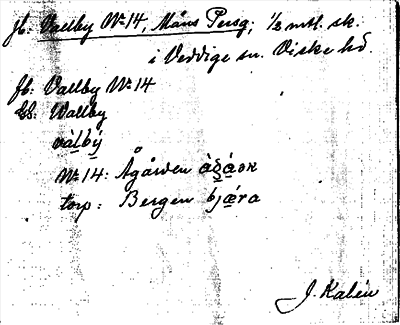 jb: Vallby Nr 14, Måns Persg; 1/2 mtl. sk.
i Veddige sn. Viske hd.
Jb: Vallby Nr 14
GS: Wallby
vàlbý
Nr 14: Ågården
torp: Bergen bjæra
J. Kalén